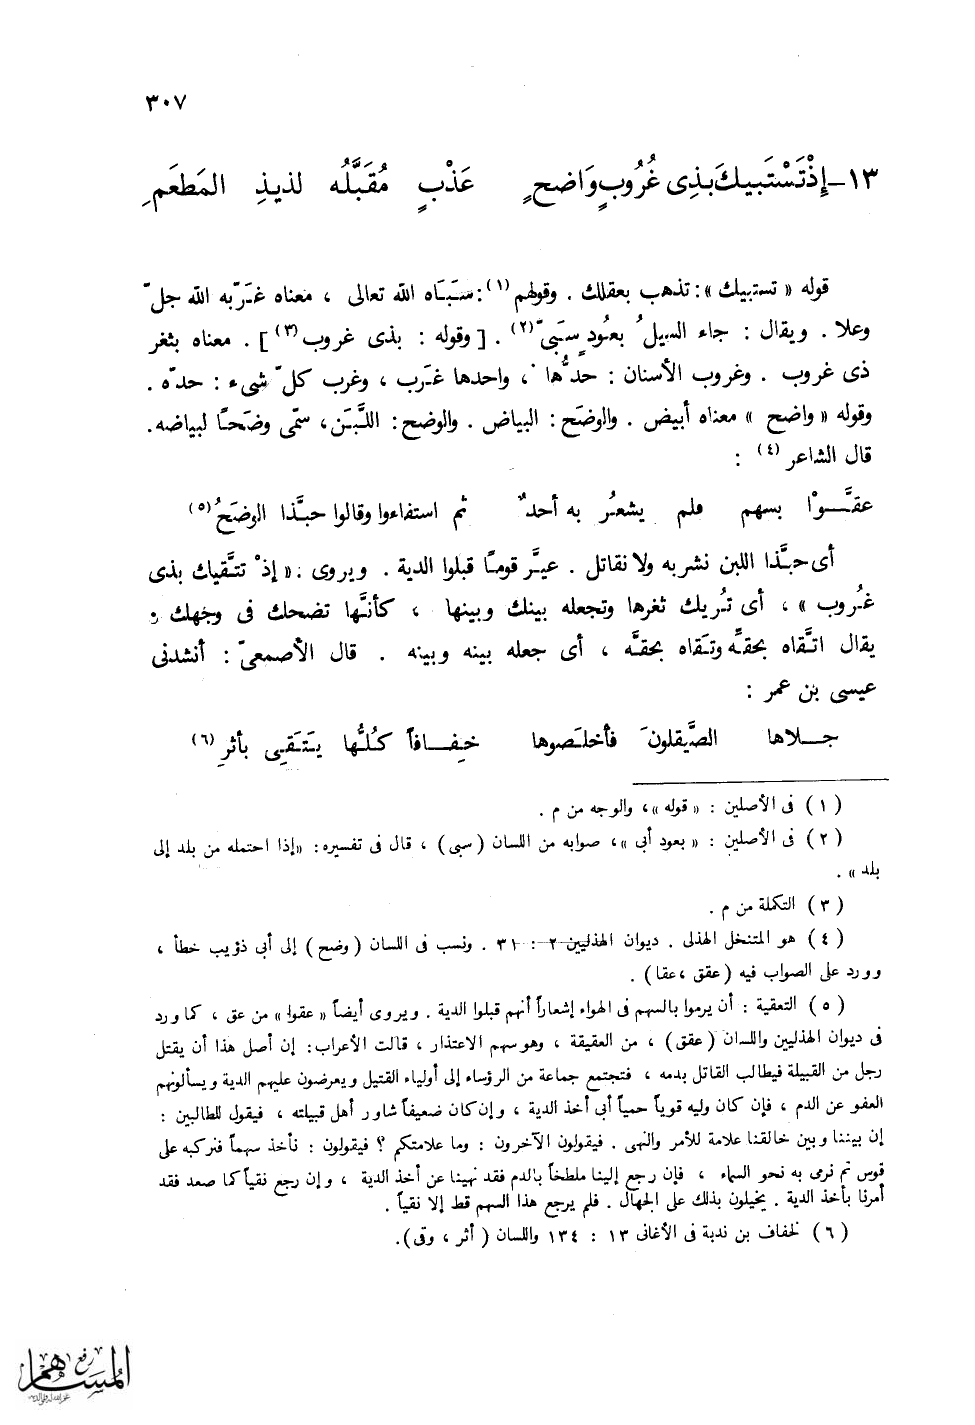 ٣٠٧
١٣ـ إِذْ تَسْتَبيكَ بذِى غُرُوبٍ وَاضحٍ عَذْبٍ مُقَبَّلُه لذيذِ المَطعَمِ
قوله « تستبيك »: تذهب بعقلك . وقولهم(١): سَبَاه الله تعالى ، معناه غرَّبه الله جلّ
وعلا . ويقال : جاء السيلُ بعُودٍ سَبىّ(٢) . [ وقوله : بذى غروب(٣) ] . معناه بثغر
ذى غروب . وغروب الأسنان : حدُّها ، واحدها غَرب ، وغرب كلّ شىء : حدّه .
وقوله « واضح » معناه أبيض . والوضَح: البياض . والوضح: اللَّبَن، سمّى وضَحًا لبياضه.
قال الشاعر (٤) :
عقَّوْا بسهم فلم يشعُر به أحدٌ ثم استفاءوا وقالوا حبَّذا الوضَحُ(٥)
أى حبَّذا اللبن نشربه ولا نقاتل . عيَّر قومًا قبلوا الدية . ويروى : « إذْ تتَّقيك بذى
غُروب » ، أى تُريك ثغرها وتجعله بينك وبينها ، كأنَّها تضحك فى وجهك :
يقال اتَّقاه بحقِّه وتَقاه بحقِّه ، أى جعله بينه وبينه . قال الأصمعىّ : أنشدنى
عيسى بن عمر :
جلاها الصَّيقلونَ فأخلَصوها خِفافاً كُلُّها يَتَقِى بأثرِ (٦)
( ١ ) فى الأصلين : « قوله »، والوجه من م .
( ٢ ) فى الأصلين : « بعود أبى »، صوابه من اللسان (سبى) ، قال فى تفسيره: «إذا احتمله من بلد إلى
بلد » .
( ٣ ) التكملة من م .
( ٤ ) هو المتنخل الهذلى . ديوان الهذليين ٢ : ٣١ . ونسب فى اللسان ( وضح ) إلى أبى ذؤيب خطأ ،
وورد على الصواب فيه ( عقق ، عقا ) .
( ٥ ) التعقية : أن يرموا بالسهم فى الهواء إشعاراً أنهم قبلوا الدية . ويروى أيضاً « عقوا » من عق ، كما ورد
فى ديوان الهذليين واللسان ( عقق ) ، من العقيقة ، وهو سهم الاعتذار ، قالت الأعراب: إن أصل هذا أن يقتل
رجل من القبيلة فيطالب القاتل بدمه ، فتجتمع جماعة من الرؤساء إلى أولياء القتيل ويعرضون عليهم الدية ويسألونهم
العفو عن الدم ، فإن كان وليه قوياً حمياً أبى أخذ الدية ، وإن كان ضعيفاً شاور أهل قبيلته ، فيقول للطالبين :
إن بيننا وبين خالقنا علامة للأمر والنهى . فيقولون الآخرون : وما علامتكم ؟ فيقولون : نأخذ سهماً فنركبه على
قوس ثم نرمى به نحو السماء ، فإن رجع إلينا ملطخاً بالدم فقد نهينا عن أخذ الدية ، وإن رجع نقياً كما صعد فقد
أمرنا بأخذ الدية . يخيلون بذلك على الجهال . فلم يرجع هذا السهم قط إلا نقياً .
( ٦ ) لخفاف بن ندبة فى الأغانى ١٣ : ١٣٤ واللسان ( أثر ، وقى ).